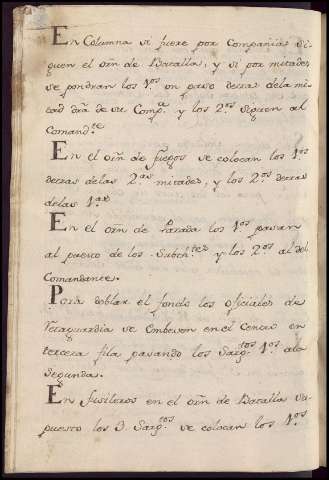 En Columna si fuere por Compañias si-
guen el orñ de Batalla, y si por mitades,
se pondran los 1.os un paso detras dela mi-
tad dra de su Comp.a y los 2.os siguen al
Comand.te
En el orñ de fuegos se colocan los 1.os
detras delas 2.as mitades, y los 2.os detras
delas 1.as
En el orñ de Parada los 1.os pasan
al puesto de los Subth.tes y los 2.os al del
Comandante.
Para doblar el fondo los oficiales de
Retaguardia se embeven en el Centro en
tercera fila pasando los Sarg.tos 1.os ala
Segunda.
En fusileros en el orñ de Batalla su-
puesto los 3 Sarg.tos se colocan los 1.os